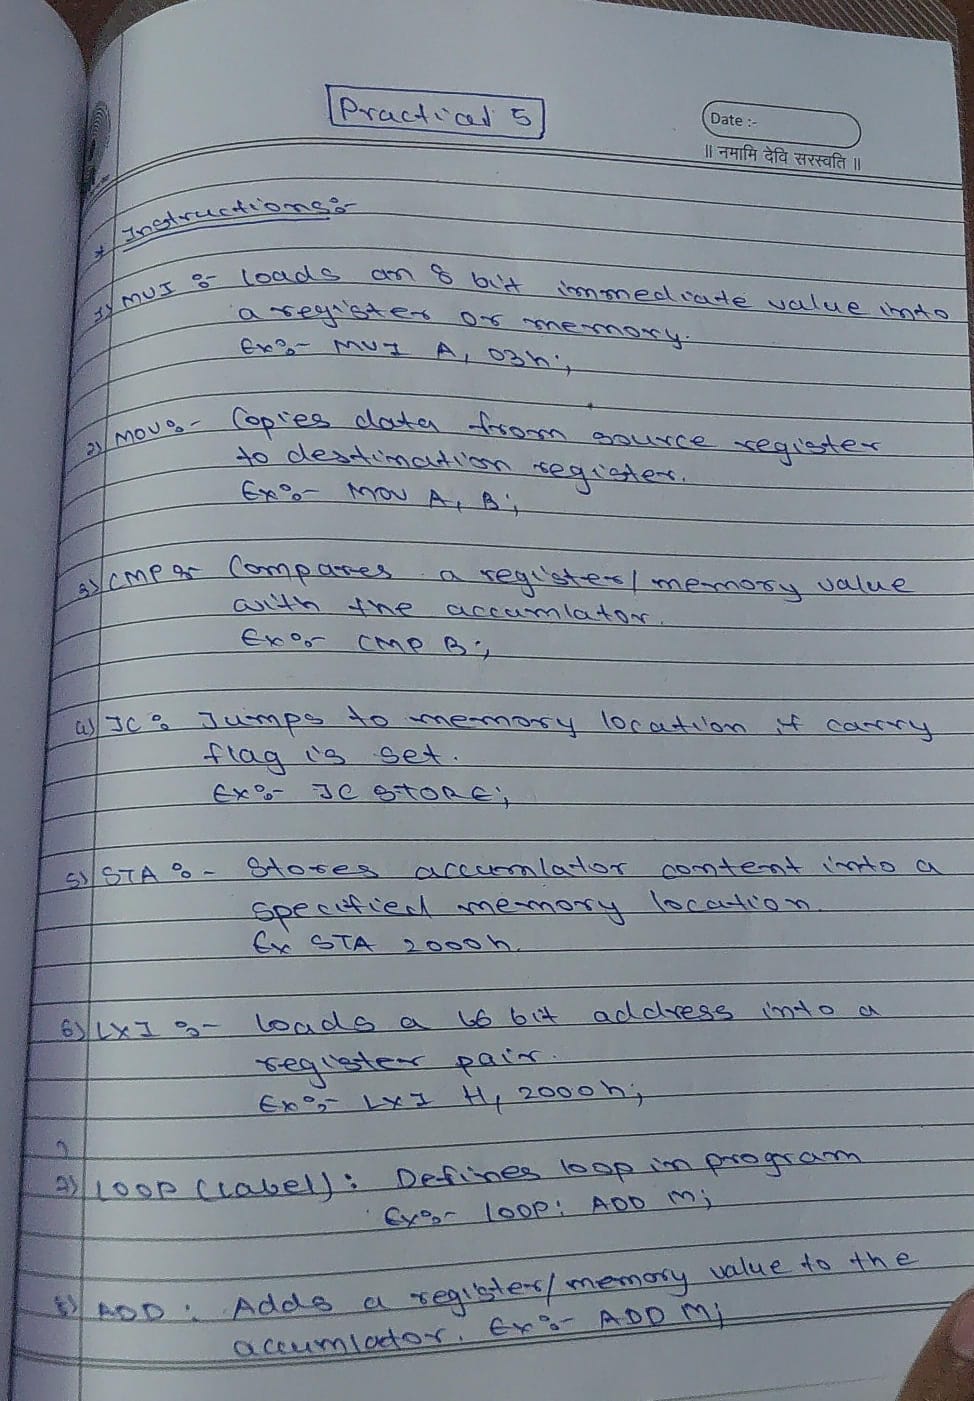 Practical 5
Date :-
॥ नमामि देवि सरस्वति ॥
* Instructions:-
1) MVI :- loads an 8 bit immediate value into
a register or memory.
Ex:- MVI A, 03h;
2) MOV:- Copies data from source register
to destination register.
Ex:- MOV A, B;
3) CMP :- Compares a register/memory value
with the accumlator.
Ex:- CMP B;
4) JC: Jumps to memory location if carry
flag is set.
Ex:- JC STORE;
5) STA :- Stores accumlator content into a
specified memory location.
Ex STA 2000h.
6) LXI :- loads a 16 bit address into a
register pair.
Ex:- LXI H, 2000h;
7) LOOP (Label): Defines loop in program
Ex:- loop: ADD M;
8) ADD : Adds a register/memory value to the
accumlator. Ex:- ADD M;